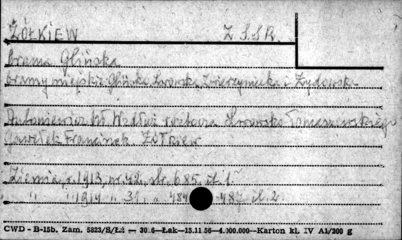 ŻÓŁKIEW Z.S.S.R.
Brama Glińska
bramy miejskie Glińska Lwowska Zwierzyniecka i Żydowska
Antoniewicz Wł. Wzdłuż rubieża Lwowsko Tomaszowskiego
Jaworski Franciszek Żółkiew
Ziemia, r. 1913, nr. 42, str. 685, il. 1.
" " 1914 n. 31, " 484 487, il. 2.
CWD - B-15b. Zam. 5823/S/Łż — 30.6—Łak—15.11 56—4.000.000—Karton kl. IV A1/200 g